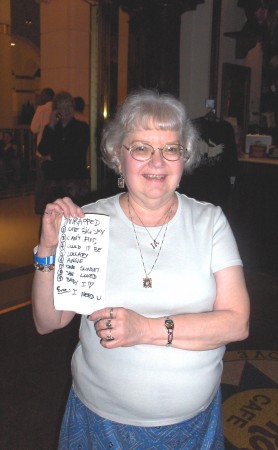 TRAPPED
① ONE BIG SKY
② CAN'T FIND
③ COULD IT BE
④ LULLABY
⑤ ANGIE
⑥ ONE SUNSET
⑦ SHE LOVED
⑧ BABY I ♡
I NEED U
CAFE